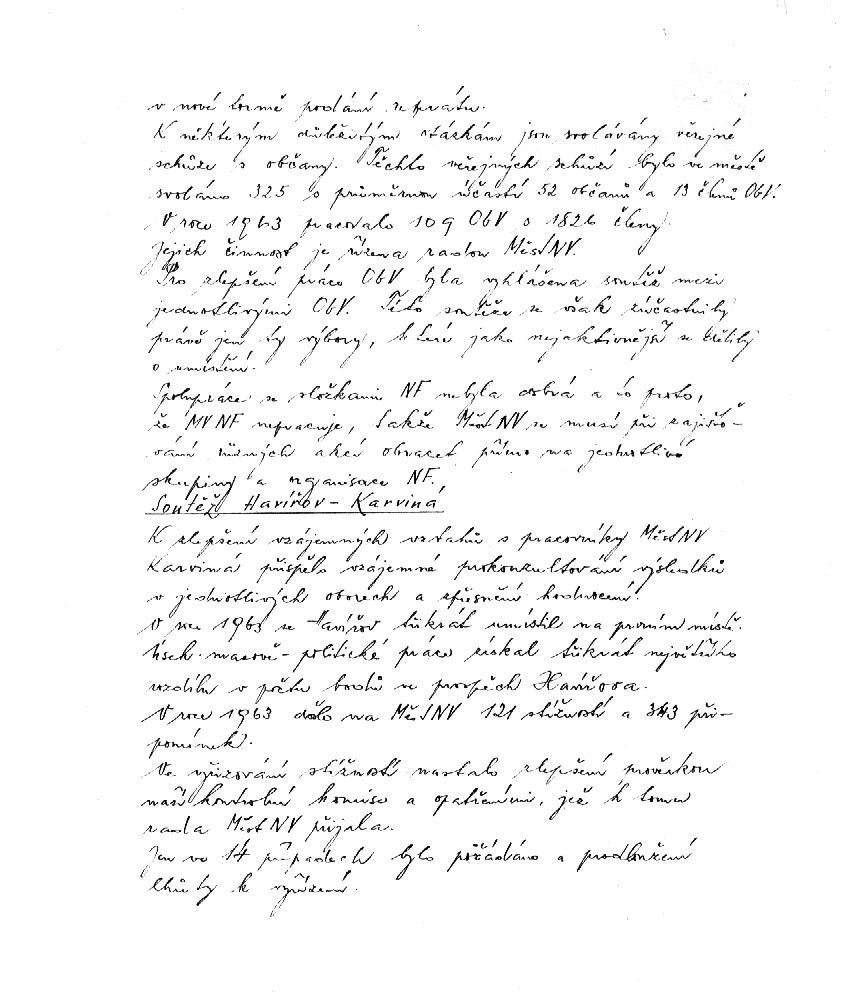 v nové formě podání referátu.
K některým důležitým otázkám jsou svolávány veřejné
schůze s občany. Těchto veřejných schůzí bylo ve městě
svoláno 325 o průměrnou účastí 52 občanů a 13 členů ObV.
V roce 1963 pracovalo 109 ObV o 1826 členy.
Jejich činnost je řízena radou MěstNV.
Pro zlepšení práce ObV byla vyhlášena soutěž mezi
jednotlivými ObV. Této soutěže se však zúčastnily
právě jen ty výbory, které jako nejaktivnější se dělily
o umístění.
Spolupráce se složkami NF nebyla dobrá a to proto,
že MVNF nepracuje, takže MěstNV se musí při zajišťo-
vání různých akcí obracet přímo na jednotlivé
skupiny a organisace NF.
Soutěž Havířov - Karviná
K zlepšení vzájemných vztahů s pracovníky MěstNV
Karviná přispělo vzájemné prokonzultování výsledků
v jednotlivých oborech a zpřesnění hodnocení.
V roce 1963 se Havířov třikrát umístil na prvním místě.
Úsek masově-politické práce získal třikrát největšího
rozdílu v počtu bodů ve prospěch Havířova.
V roce 1963 došlo na MěstNV 121 stížností a 343 při-
pomínek.
Ve vyřizování stížností nastalo zlepšení prověrkou
naší kontrolní komise a opatřeními, jež k tomu
rada MěstNV přijala.
Jen ve 14 případech bylo požádáno o prodloužení
lhůty k vyřízení.